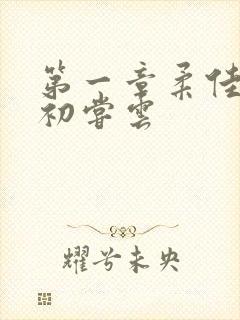 第一章柔佳
初尝云
耀兮未央